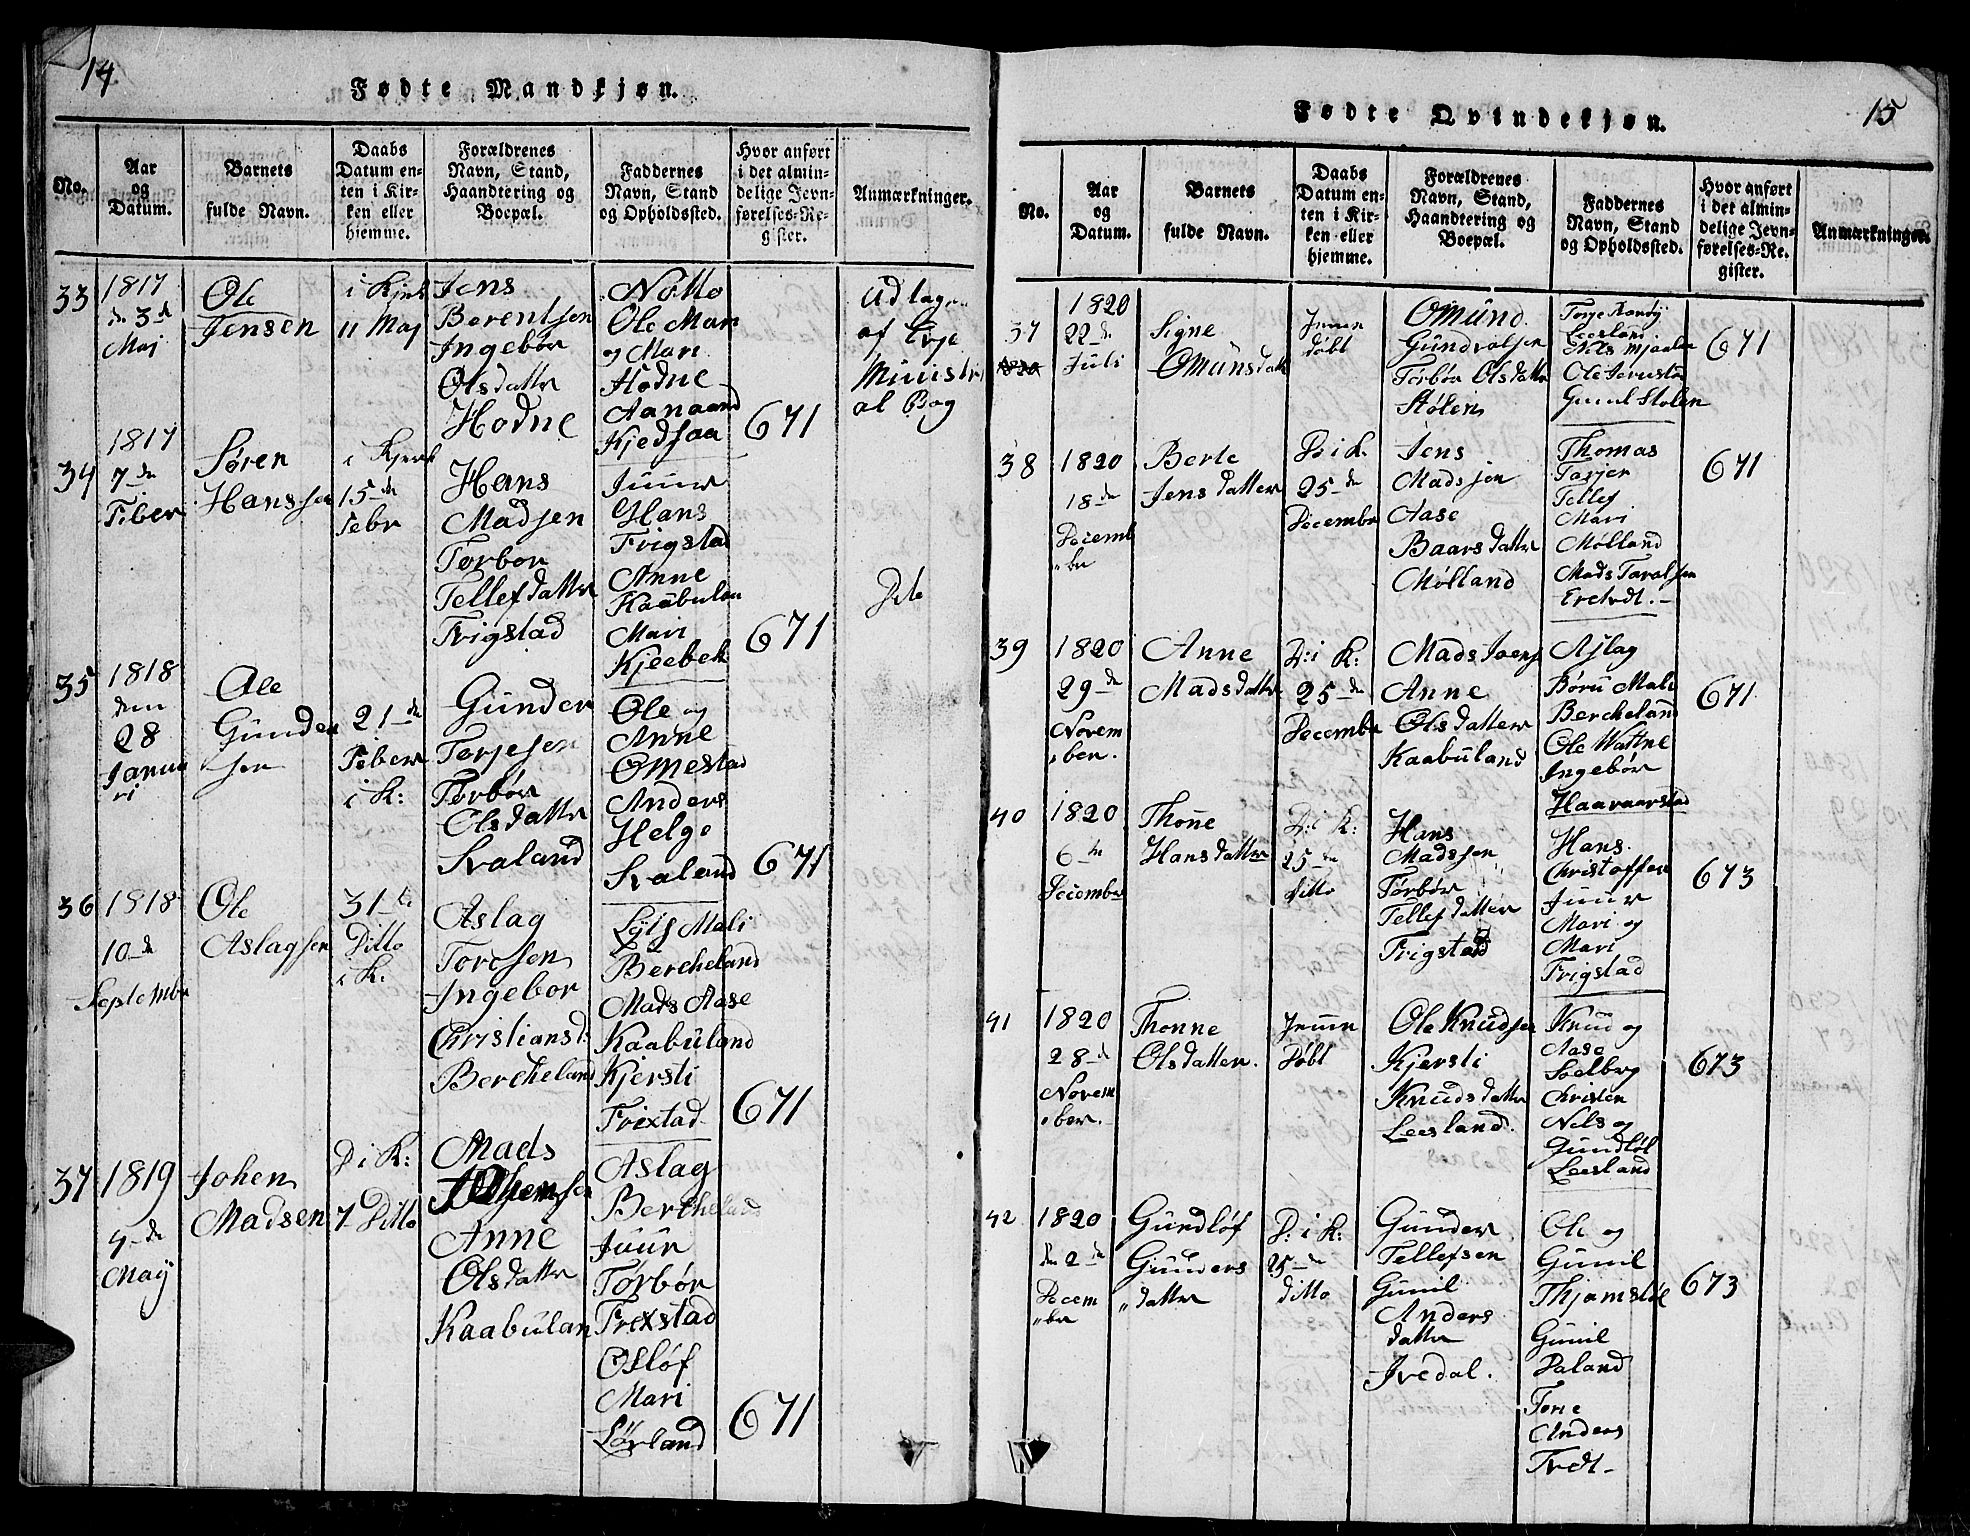 14.
Fødte Mandkjøn.
No.
Aar
og
Datum.
Barnets
fulde Navn.
Daabs
Datum en-
ten i Kir-
ken eller
hjemme.
Forældrenes
Navn, Stand,
Haandtering og
Boepæl.
Faddernes
Navn, Stand
og Opholdssted.
Hvor anført
i det almin-
delige Jevn-
førelses-Re-
gister.
Anmærkninger.
33
1817
d 3de
Maj
Ole
Jensen
i Kjrk
11 Maj
Jens
Berentsen
Ingebør
Olsdattr
Hodne
Notto
Ole Mari
og Mari
Hodne
Aanaand
Kjedsaa
671
Udtagen
af
Ministri
al Bog
34
1817
7de
Feber
Søren
Hanssen
i Kjerk
15de
Febr
Hans
Madsen
Torbor
Tellefdattr
Frigstad
Juur
Hans
Frigstad
Anne
Kaabulan
Mari
Kjeebek
671
Dito
35
1818
den
28
Januu
ri
Ole
Gunder
sen
21de
Feber
i K:
Gunder
Torjesen
Torbør
Olsdattr
Svaland
Ole og
Anne
Omestad
Anders
Helge
Svaland
671
36
1818
10de
September
Ole
Aslagsen
31te
Ditto
i K.
Aslag
Toresen
Ingebor
Christiansd:
Bercheland
Mali
Bercheland
Mads Aase
Kaabuland
Kjersti
Frixtad
671
37
1819
4de
May
Johen
Madsen
D i K:
7 Ditto
Mads
Anne
Olsdattr
Kaabulan
Aslag
Bercheland
Juur
Torbør
Frexstad
Osløf
Mari
Lørland
671
15
Fødte Qvindekjøn.
No.
Aar
og
Datum.
Barnets
fulde Navn.
Daabs
Datum en-
ten i Kir-
ken eller
hjemme.
Forældrenes
Navn, Stand,
Haandtering og
Boepæl.
Faddernes
Navn, Stand
og Opholdssted.
Hvor anført
i det almin-
delige Jevn-
førelses-Re-
gister.
Anmærkninger.
37
1820
22de
Juli
Signe
Omunsdatt
Jemen
døbt
Omund
Gundvalsen
Torbør Olsdattr
Stølen
Leesland
Nils Mjaaland
Ole
Gunil Stolen
671
38
1820
18de
Decemb
"ber
Berte
Jensdatter
D: i K.
25de
Decembr
Jens
Madssen
Aase
Baarsdattr
Mølland
Thomas
Tarjer
Tellef
Mari
Mølland
Mads Tarolsen
Eretvdt.
671
39
1820
29de
Novem
"ber.
Anne
Madsdatter
D: i K:
25de
Decembr
Mads Joens
Anne
Olsdatter
Kaabuland
Aslag
Børu Mali
Bercheland
Ole Wattne
Ingebør
Haavaarstad
671
40
1820
6te
December
Thone
Hansdatter
D: i K:
25de
Ditto
Hans
Madssen
Torbør
Tellefdatter
Frigstad
Hans
Christoffer
Juur
Mari og
Mari
Frigstad
673
41
1820
28de
Novem
"ber.
Thonne
Olsdatter.
Jemen
Døbt
Ole Knudsen
Kjersti
Knudsdatter
Leesland.
Knud og
Aase
Soelberg
Christen
Nils og
Gundløf
Leesland
673
42
1820
den 2de
Decem
"ber
Gundløf
Gunders
"dattr
D: i K:
25de
ditto
Gunder
Tellefsen
Gunil
Anders
dattr
Ivedal.
Ole og
Gunil
Thjamstøl
Gunil
Daland
Tone
Anders
Tvedt
673